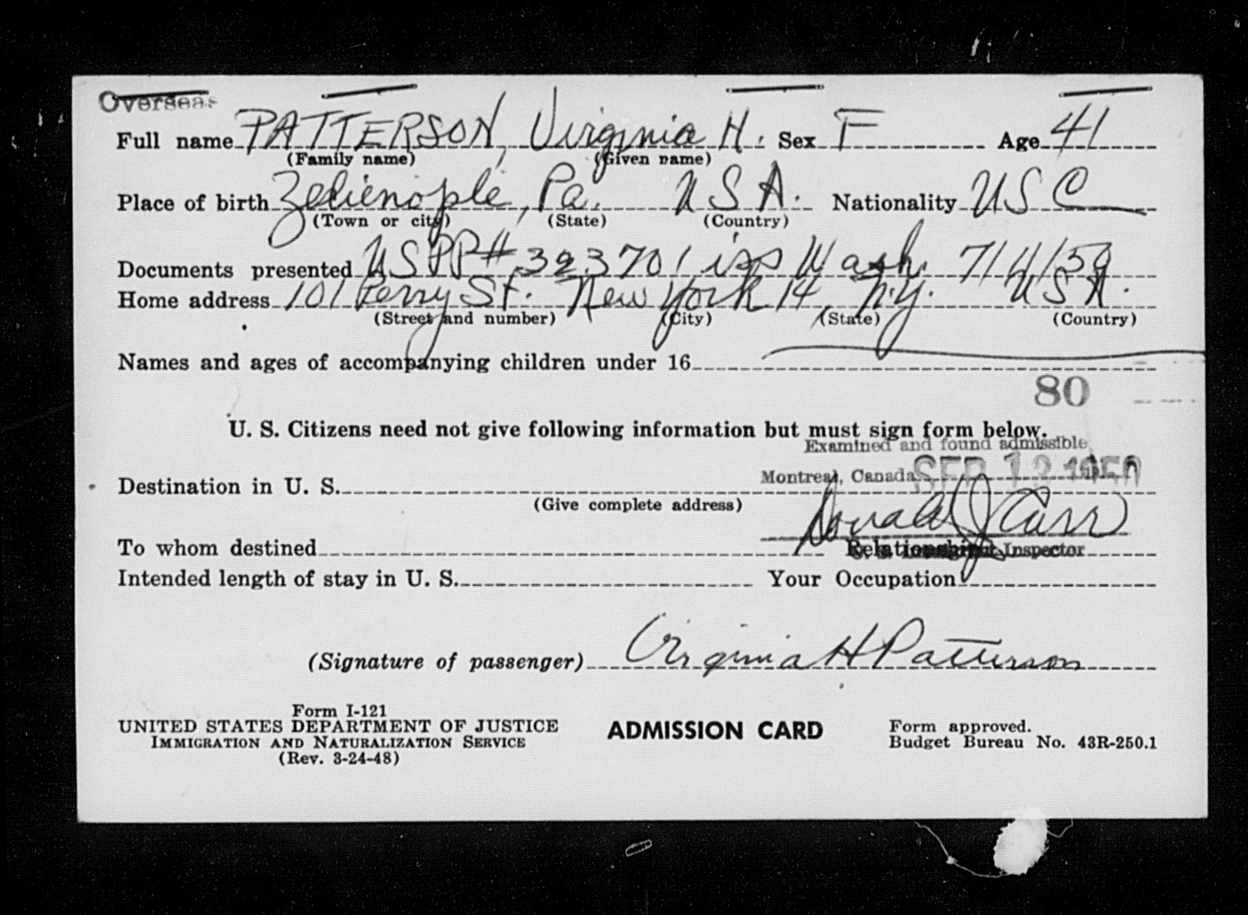 Overseas
Full name PATTERSON, Virginia H. Sex F Age 41
(Family name) (Given name)
Place of birth Zelienople, Pa. USA. Nationality USC
(Town or city) (State) (Country)
Documents presented USPP# 323701 iss Wash. 7/4/50
Home address 101 Perry St. New York 14, N.Y. USA.
(Street and number) (City) (State) (Country)
Names and ages of accompanying children under 16
80
U. S. Citizens need not give following information but must sign form below.
Examined and found admissible
Montreal, Canada SEP 12 1950
Destination in U. S.
(Give complete address)
Donald J Carr
To whom destined Relationship Inspector
Intended length of stay in U. S. Your Occupation
(Signature of passenger) Virginia H Patterson
Form I-121
UNITED STATES DEPARTMENT OF JUSTICE ADMISSION CARD Form approved.
IMMIGRATION AND NATURALIZATION SERVICE Budget Bureau No. 43R-250.1
(Rev. 3-24-48)